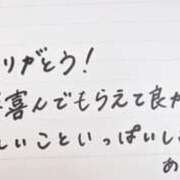 りがとう!
喜んでもらえて良か
しいこといっぱいし
あ